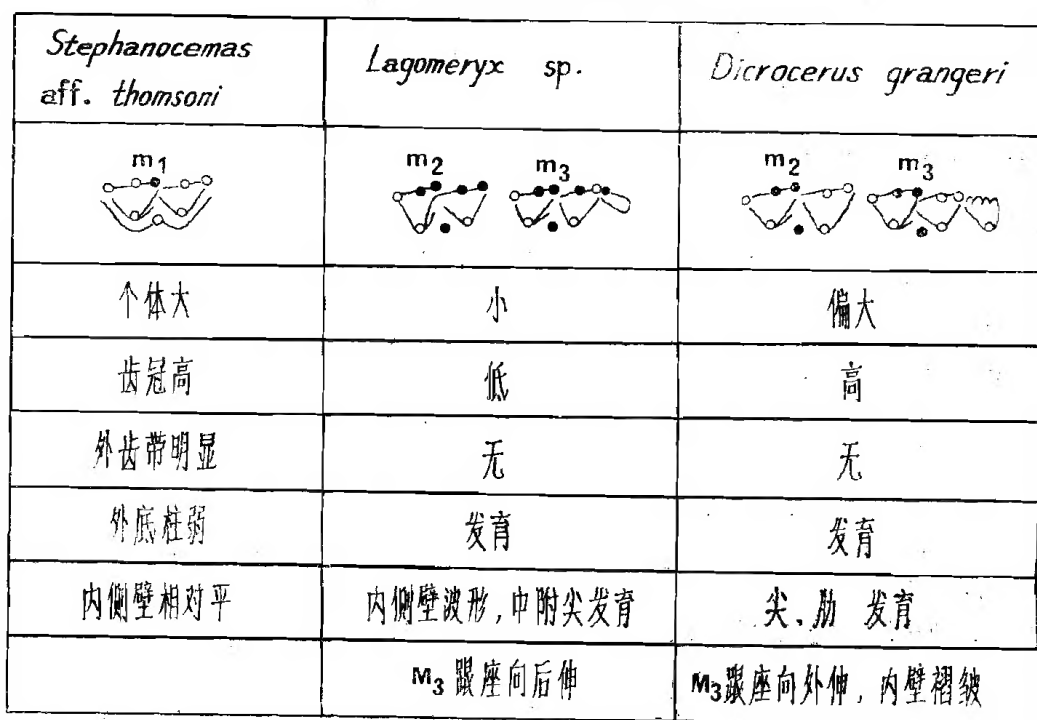 Stephanocemas
aff. thomsoni
Lagomeryx sp.
Dicrocerus grangeri
m1
m2 m3
m2 m3
个体大
小
偏大
齿冠高
低
高
外齿带明显
无
无
外底柱弱
发育
发育
内侧壁相对平
内侧壁波形,中附尖发育
尖、肋 发育
M3跟座向后伸
M3跟座向外伸,内壁褶皱